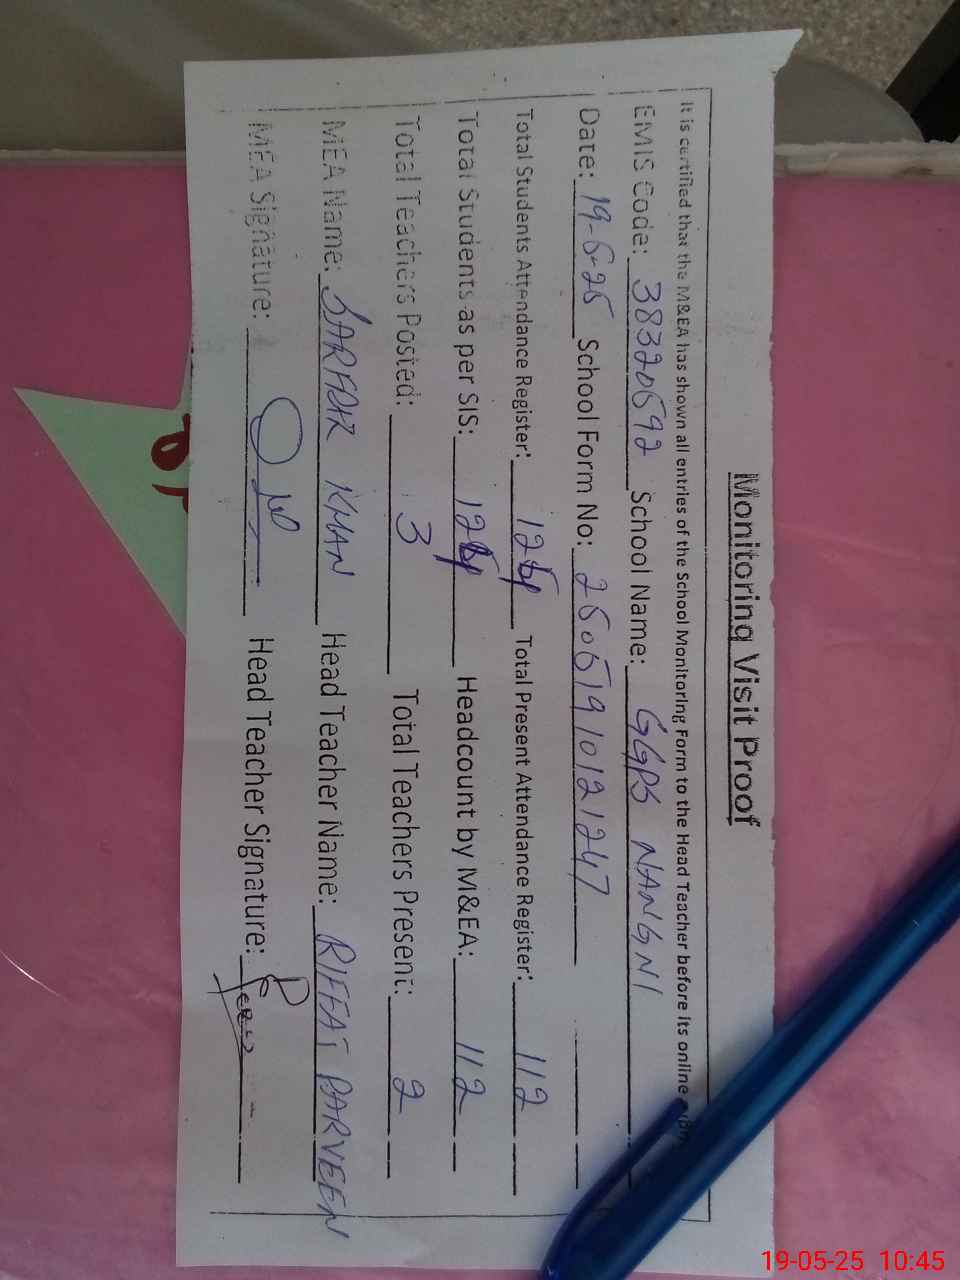 Monitoring Visit Proof
It is certified that the M&EA has shown all entries of the School Monitoring Form to the Head Teacher before its online
EMIS Code: 38320592 School Name: GGPS NANGNI
Date: 19-5-25 School Form No: 25051910121247
Total Students Attendance Register: Total Present Attendance Register: 112
Total Students as per SIS: Headcount by M&EA: 112
Total Teachers Posted: 3 Total Teachers Present: 2
MEA Name: KHAN Head Teacher Name: RIFFAT PARVEEN
MEA Signature: Head Teacher Signature:
19-05-25 10:45